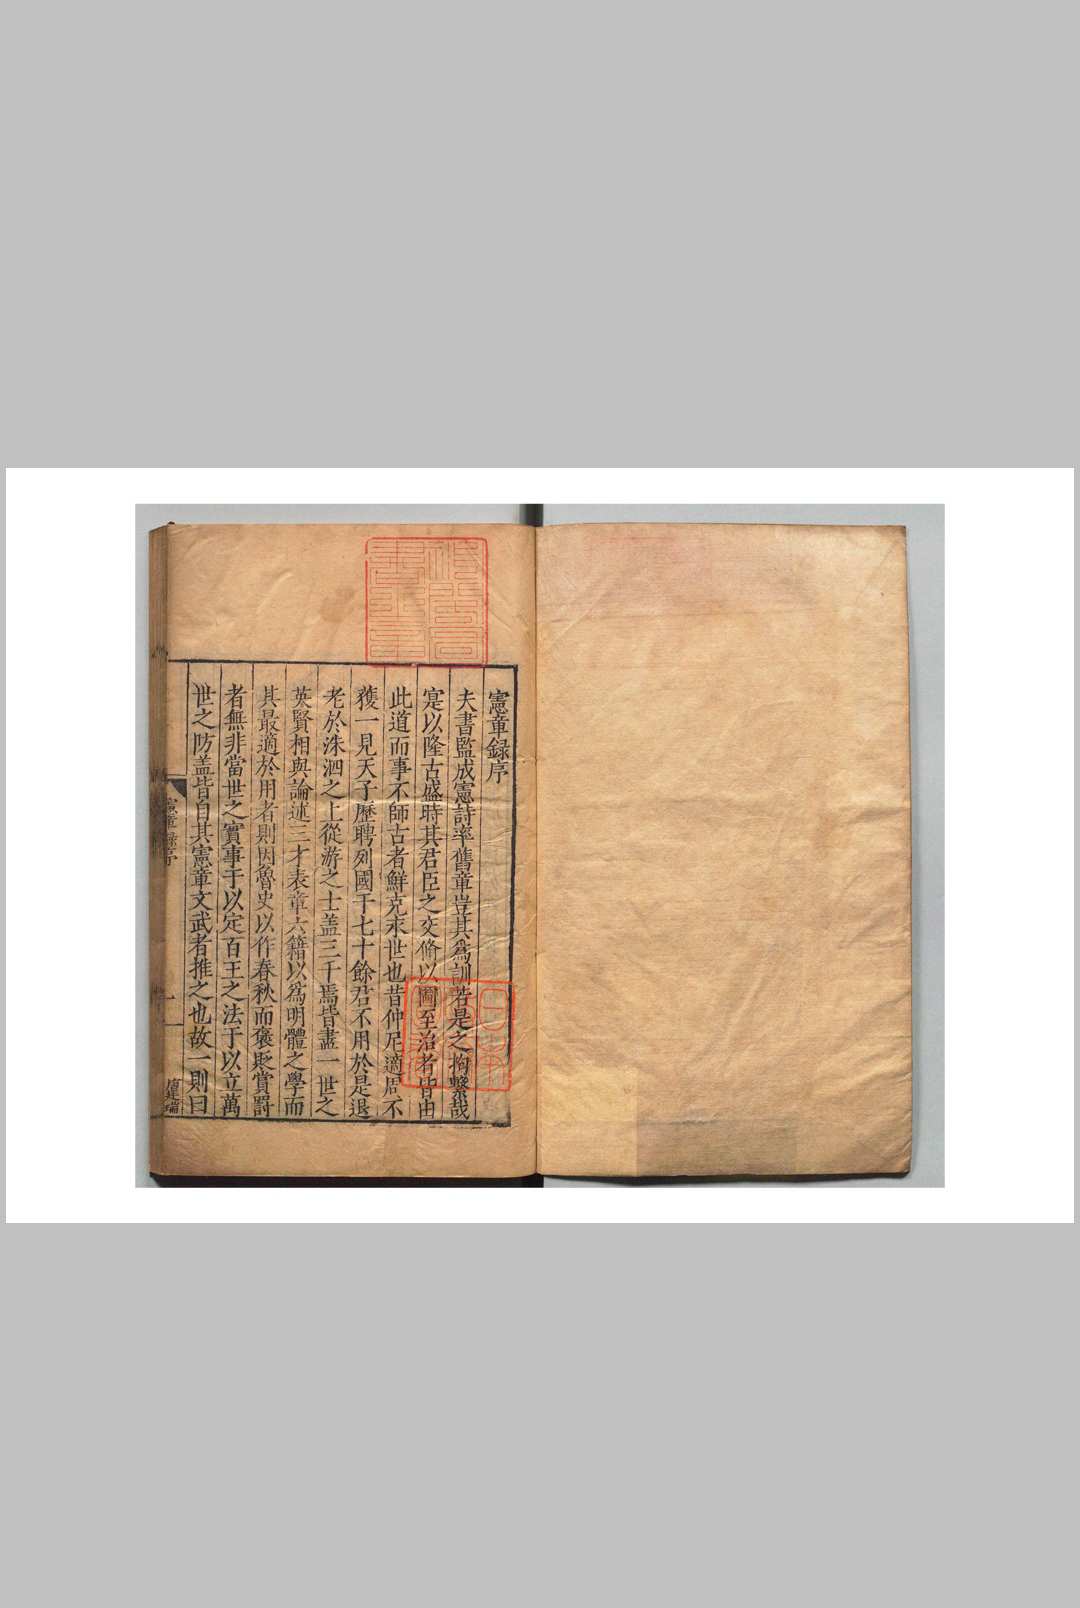 憲章録序
夫書監成憲詩率舊章豈其為訓若是之拘繫哉
寔以隆古盛時其君臣之交脩以圖至治者皆由
此道而事不師古者鮮克永世也昔仲尼適周不
獲一見天子歷聘列國于七十餘君不用於是退
老於洙泗之上從游之士盖三千焉皆盡一世之
英賢相與論述三才表章六籍以為明體之學而
其最適於用者則因魯史以作春秋而褒貶賞罰
者無非當世之實事于以定百王之法于以立萬
世之防盖皆自其憲章文武者推之也故一則曰
憲章録序
一